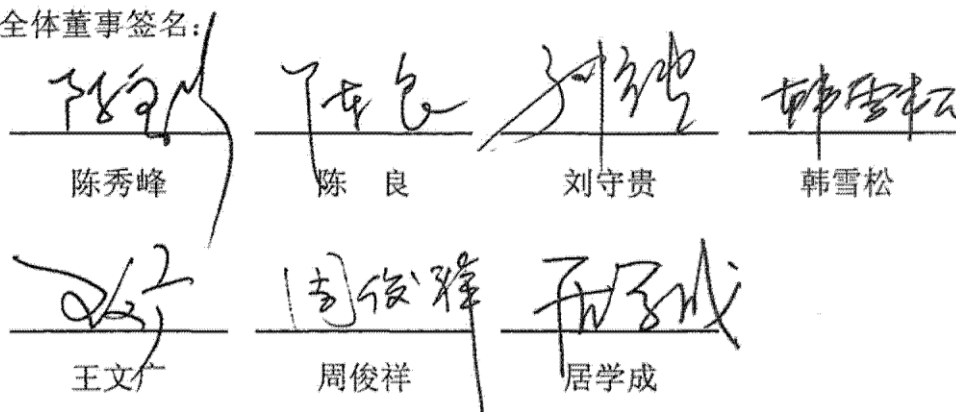 全体董事签名：
陈秀峰 陈良 刘守贵 韩雪松
陈秀峰 陈 良 刘守贵 韩雪松
周俊祥 居学成
王文广 周俊祥 居学成